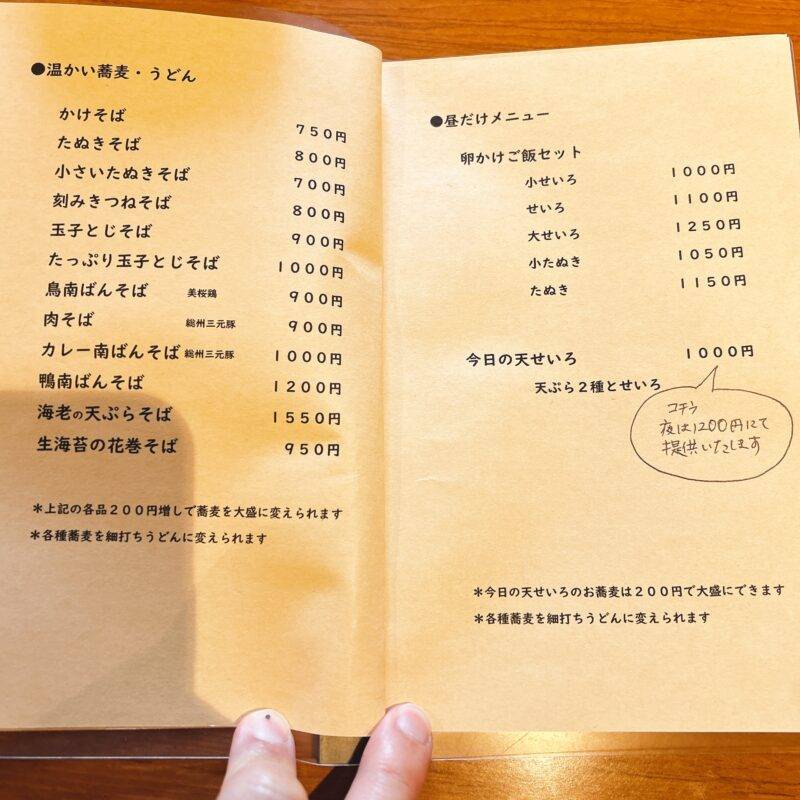 ●温かい蕎麦・うどん
かけそば 750円
たぬきそば 800円
小さいたぬきそば 700円
刻みきつねそば 800円
玉子とじそば 900円
たっぷり玉子とじそば 1000円
鳥南ばんそば 美桜鶏 900円
肉そば 総州三元豚 900円
カレー南ばんそば 総州三元豚 1000円
鴨南ばんそば 1200円
海老の天ぷらそば 1550円
生海苔の花巻そば 950円
*上記の各品200円増しで蕎麦を大盛に変えられます
*各種蕎麦を細打ちうどんに変えられます
●昼だけメニュー
卵かけご飯セット
小せいろ 1000円
せいろ 1100円
大せいろ 1250円
小たぬき 1050円
たぬき 1150円
今日の天せいろ 1000円
天ぷら2種とせいろ
コチラ
夜は1200円にて
提供いたします
*今日の天せいろのお蕎麦は200円で大盛にできます
*各種蕎麦を細打ちうどんに変えられます